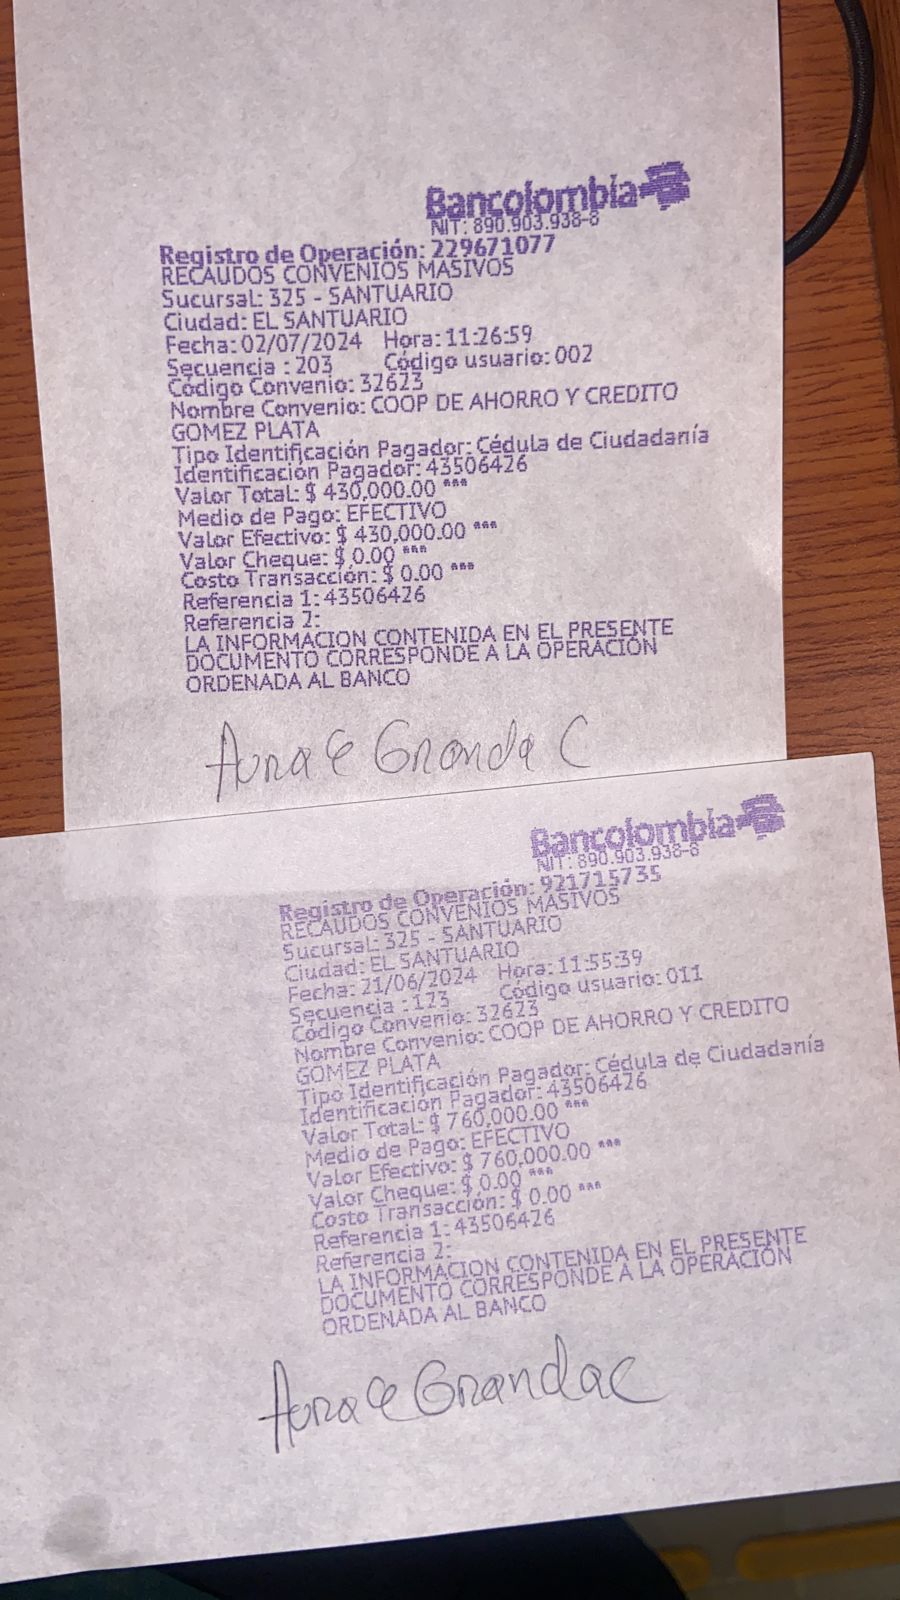 Bancolombia
NIT: 890.903.938-8
Registro de Operación: 229671077
RECAUDOS CONVENIOS MASIVOS
Sucursal: 325 - SANTUARIO
Ciudad: EL SANTUARIO
Fecha: 02/07/2024 Hora: 11:26:59
Secuencia : 203 Código usuario: 002
Código Convenio: 32623
Nombre Convenio: COOP DE AHORRO Y CREDITO
GOMEZ PLATA
Tipo Identificación Pagador: Cédula de Ciudadanía
Identificación Pagador: 43506426
Valor Total: $ 430,000.00 ***
Medio de Pago: EFECTIVO
Valor Efectivo: $ 430,000.00 ***
Valor Cheque: $ 0.00 ***
Costo Transacción: $ 0.00 ***
Referencia 1: 43506426
Referencia 2:
LA INFORMACION CONTENIDA EN EL PRESENTE
DOCUMENTO CORRESPONDE A LA OPERACIÓN
ORDENADA AL BANCO
Aura e Granda C
Bancolombia
NIT: 890.903.938-8
Registro de Operación: 921715735
RECAUDOS CONVENIOS MASIVOS
Sucursal: 325 - SANTUARIO
Ciudad: EL SANTUARIO
Fecha: 21/06/2024 Hora: 11:55:39
Secuencia : 123 Código usuario: 011
Código Convenio: 32623
Nombre Convenio: COOP DE AHORRO Y CREDITO
GOMEZ PLATA
Tipo Identificación Pagador: Cédula de Ciudadanía
Identificación Pagador: 43506426
Valor Total: $ 760,000.00 ***
Medio de Pago: EFECTIVO
Valor Efectivo: $ 760,000.00 ***
Valor Cheque: $ 0.00 ***
Costo Transacción: $ 0.00 ***
Referencia 1: 43506426
Referencia 2:
LA INFORMACION CONTENIDA EN EL PRESENTE
DOCUMENTO CORRESPONDE A LA OPERACIÓN
ORDENADA AL BANCO
Aura e Granda C